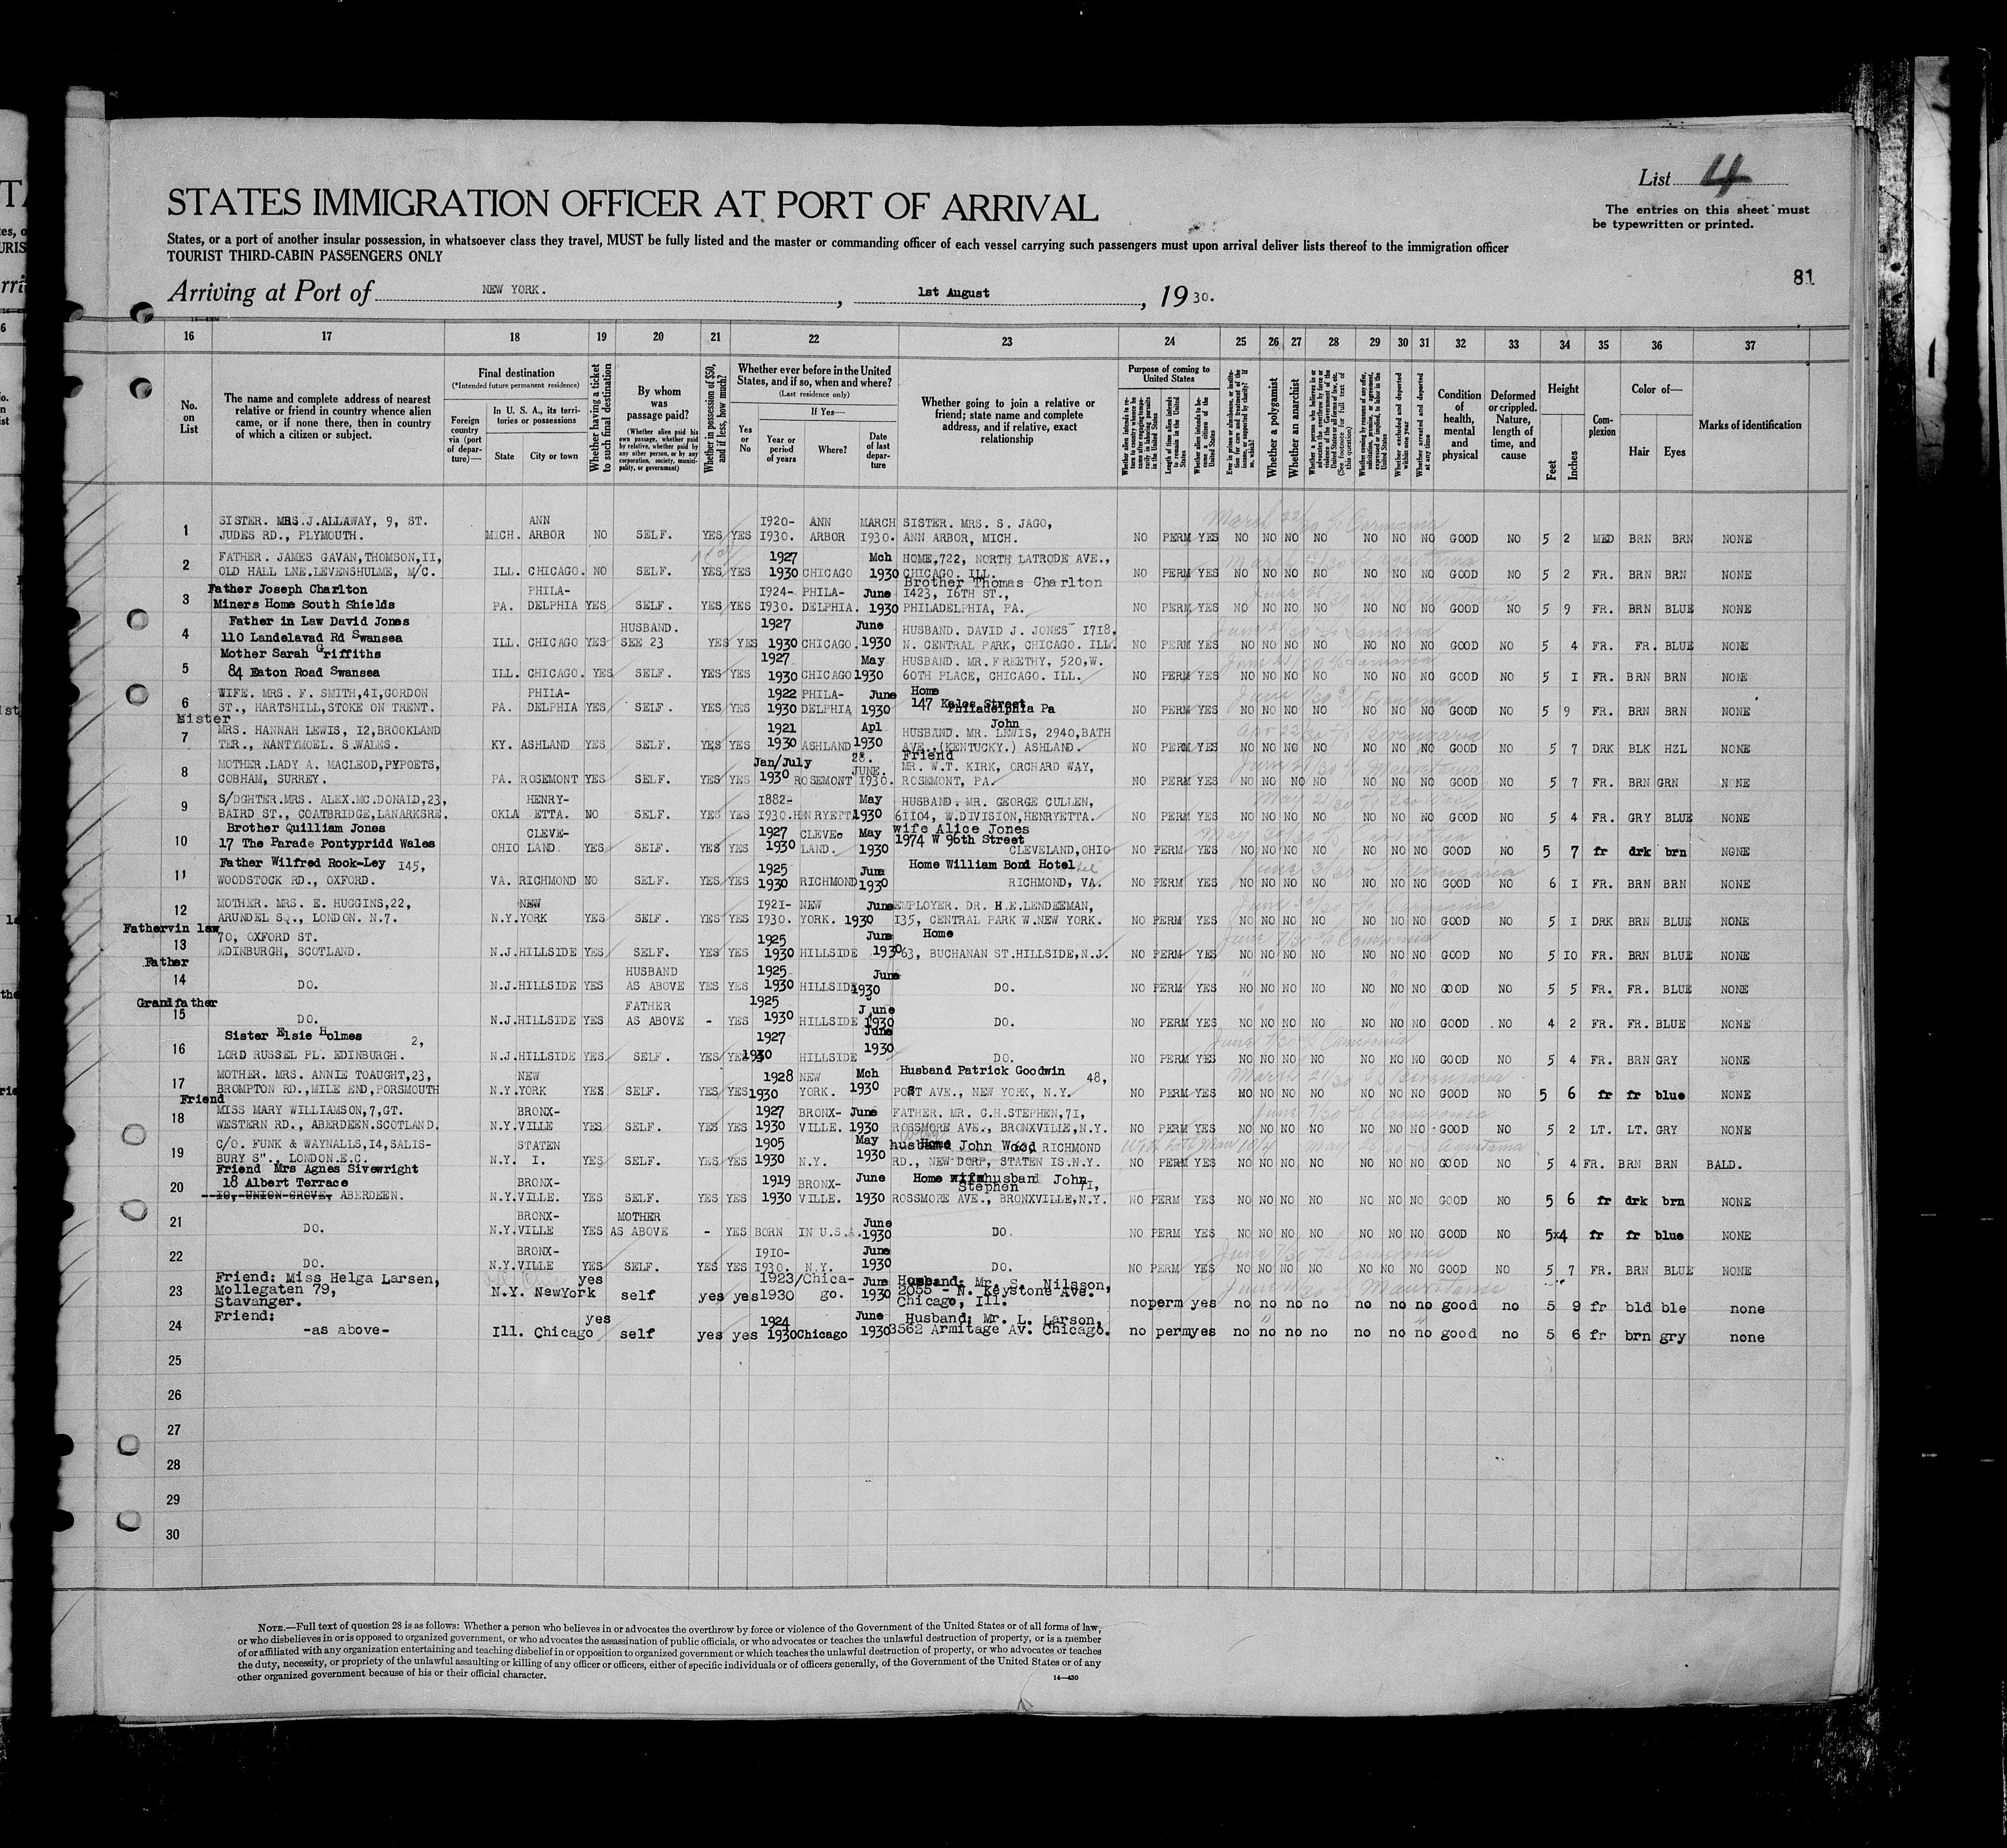 List 4
The entries on this sheet must
be typewritten or printed.
STATES IMMIGRATION OFFICER AT PORT OF ARRIVAL
States, or a port of another insular possession, in whatsoever class they travel, MUST be fully listed and the master or commanding officer of each vessel carrying such passengers must upon arrival deliver lists thereof to the immigration officer
TOURIST THIRD-CABIN PASSENGERS ONLY
81
Arriving at Port of NEW YORK. , 1st August , 1930.
16 17 18 19 20 21 22 23 24 25 26 27 28 29 30 31 32 33 34 35 36 37
No. on List
The name and complete address of nearest
relative or friend in country whence alien
came, or if none there, then in country
of which a citizen or subject.
Final destination
(*Intended future permanent residence)
Foreign country via (port of departure)—
In U. S. A., its territories or possessions
State
City or town
Whether having a ticket to such final destination
By whom was passage paid?
(Whether alien paid his own passage, whether paid by relative, whether paid by any other person, or by any corporation, society, municipality, or government)
Whether in possession of $50, and if less, how much?
Whether ever before in the United States, and if so, when and where?
(Last residence only)
Yes or No
If Yes—
Year or period of years
Where?
Date of last departure
Whether going to join a relative or
friend; state name and complete
address, and if relative, exact
relationship
Purpose of coming to United States
Whether a polygamist
Whether an anarchist
Whether excluded and deported within one year
Whether arrested and deported at any time
Condition of health, mental and physical
Deformed or crippled. Nature, length of time, and cause
Height
Feet
Inches
Complexion
Color of—
Hair
Eyes
Marks of identification
1 SISTER. MRS.J.ALLAWAY, 9, ST. JUDES RD., PLYMOUTH. MICH. ANN ARBOR NO SELF. YES YES 1920-1930. ANN ARBOR MARCH 1930. SISTER. MRS. S. JAGO, ANN ARBOR, MICH. NO PERM YES NO NO NO NO NO NO NO GOOD NO 5 2 MED BRN BRN NONE
2 FATHER. JAMES GAVAN,THOMSON,II, OLD HALL LNE.LEVENSHULME, M/C. ILL. CHICAGO. NO SELF. YES YES 1927 1930 CHICAGO Mch 1930 HOME,722, NORTH LATRODE AVE., CHICAGO. ILL. NO PERM YES NO NO NO NO NO NO NO GOOD NO 5 2 FR. BRN BRN NONE
3 Father Joseph Charlton Miners Home South Shields PA. PHILA-DELPHIA YES SELF. YES YES 1924-1930. PHILA-DELPHIA. June 1930 Brother Thomas Charlton 1423, 16TH ST., PHILADELPHIA, PA. NO PERM YES NO NO NO NO NO NO NO GOOD NO 5 9 FR. BRN BLUE NONE
4 Father in Law David Jones 110 Landelavad Rd Swansea ILL. CHICAGO YES HUSBAND. SEE 23 YES YES 1927 1930 CHICAGO. June 1930 HUSBAND. DAVID J. JONES 1718. N. CENTRAL PARK, CHICAGO. ILL. NO PERM YES NO NO NO NO NO NO NO GOOD NO 5 4 FR. FR. BLUE NONE
5 Mother Sarah Griffiths 84 Eaton Road Swansea ILL. CHICAGO. YES SELF. YES YES 1927 1930 CHICAGO May 1930 HUSBAND. MR.FREETHY, 520,W. 60TH PLACE, CHICAGO. ILL. NO PERM YES NO NO NO NO NO NO NO GOOD NO 5 I FR. BRN BRN NONE
6 WIFE. MRS. F. SMITH,4I,GORDON ST., HARTSHILL,STOKE ON TRENT. PA. PHILA-DELPHIA YES SELF. YES YES 1922 1930 PHILA-DELPHIA June 1930 Home 147 Kalos Street Philadelphia Pa NO PERM YES NO NO NO NO NO NO NO GOOD NO 5 9 FR. BRN BRN NONE
7 Sister MRS. HANNAH LEWIS, I2,BROOKLAND TER., NANTYMOEL. S.WALES. KY. ASHLAND YES SELF. YES YES 1921 1930 ASHLAND Apl 1930 HUSBAND. MR. John LEWIS, 2940,BATH AVE.,(KENTUCKY.) ASHLAND. NO PERM YES NO NO NO NO NO NO NO GOOD NO 5 7 DRK BLK HZL NONE
8 MOTHER.LADY A. MACLEOD,PYPOETS, COBHAM, SURREY. PA. ROSEMONT YES SELF. YES YES Jan/July 1930 ROSEMONT 28. JUNE. 1930. Friend MR. W.T. KIRK, ORCHARD WAY, ROSEMONT, PA. NO PERM YES NO NO NO NO NO NO NO GOOD NO 5 7 FR. BRN GRN NONE
9 S/DGHTER.MRS. ALEX.MC.DONALD,23, BAIRD ST., COATBRIDGE,LANARKSRE. OKLA HENRY-ETTA. NO SELF. YES YES 1882-1930. HENRYETTA May 1930 HUSBAND. MR. GEORGE CULLEN, 61104, W.DIVISION,HENRYETTA. NO PERM YES NO NO NO NO NO NO NO GOOD NO 5 4 FR. GRY BLUE NONE
10 Brother Quilliam Jones 17 The Parade Pontypridd Wales OHIO CLEVE-LAND. YES SELF. YES YES 1927 1930 CLEVE-LAND. May 1930 wife Alice Jones 1974 W 96th Street CLEVELAND,OHIO NO PERM YES NO NO NO NO NO NO NO GOOD NO 5 7 fr drk brn NONE
11 Father Wilfred Rook-Ley 145, WOODSTOCK RD., OXFORD. VA. RICHMOND NO SELF. YES YES 1925 1930 RICHMOND June 1930 Home William Bond Hotel RICHMOND, VA. NO PERM YES NO NO NO NO NO NO NO GOOD NO 6 I FR. BRN BRN NONE
12 MOTHER. MRS. E. HUGGINS,22, ARUNDEL SQ., LONDON. N.7. N.Y. NEW YORK YES SELF. YES YES 1921-1930. NEW YORK. June 1930 EMPLOYER. DR. H.E.LENDEEMAN, 135, CENTRAL PARK W.NEW YORK. NO PERM YES NO NO NO NO NO NO NO GOOD NO 5 I DRK BRN BLUE NONE
13 Father in law 70, OXFORD ST. EDINBURGH, SCOTLAND. N.J. HILLSIDE YES SELF. YES YES 1925 1930 HILLSIDE June 1930 Home 63, BUCHANAN ST.HILLSIDE,N.J. NO PERM YES NO NO NO NO NO NO NO GOOD NO 5 IO FR. BRN BLUE NONE
14 Father DO. N.J. HILLSIDE YES HUSBAND AS ABOVE YES YES 1925 1930 HILLSIDE June 1930 DO. NO PERM YES NO NO NO NO NO NO NO GOOD NO 5 5 FR. FR. BLUE NONE
15 Grandfather DO. N.J. HILLSIDE YES FATHER AS ABOVE - YES 1925 1930 HILLSIDE June 1930 DO. NO PERM YES NO NO NO NO NO NO NO GOOD NO 4 2 FR. FR. BLUE NONE
16 Sister Elsie Holmes 2, LORD RUSSEL PL. EDINBURGH. N.J. HILLSIDE YES SELF. YES YES 1927 1930 HILLSIDE June 1930 DO. NO PERM YES NO NO NO NO NO NO NO GOOD NO 5 4 FR. BRN GRY NONE
17 MOTHER. MRS. ANNIE TOAUGHT,23, BROMPTON RD.,MILE END,PORSMOUTH N.Y. NEW YORK YES SELF. YES YES 1928 1930 NEW YORK. Mch 1930 Husband Patrick Goodwin 48, POST AVE., NEW YORK, N.Y. NO PERM YES NO NO NO NO NO NO NO GOOD NO 5 6 fr fr blue NONE
18 Friend MISS MARY WILLIAMSON,7,GT. WESTERN RD., ABERDEEN.SCOTLAND. N.Y. BRONX-VILLE YES SELF. YES YES 1927 1930 BRONX-VILLE. June 1930 FATHER. MR. G.H.STEPHEN,7I, ROSSMORE AVE., BRONXVILLE,N.Y. NO PERM YES NO NO NO NO NO NO NO GOOD NO 5 2 LT. LT. GRY NONE
19 C/O. FUNK & WAYNALLS,I4,SALIS-BURY S"., LONDON.E.C. N.Y. STATEN I. YES SELF. YES YES 1905 1930 N.Y. May 1930 husband John Wood RICHMOND RD., NEW DORP, STATEN IS.N.Y. NO PERM YES NO NO NO NO NO NO NO GOOD NO 5 4 FR. BRN BRN BALD.
20 Friend Mrs Agnes Sivewright 18 Albert Terrace IO, UNION GROVE, ABERDEEN. N.Y. BRONX-VILLE. YES SELF. YES YES 1919 1930 BRONX-VILLE. June 1930 Home husband John Stephen 7I, ROSSMORE AVE., BRONXVILLE,N.Y. NO PERM YES NO NO NO NO NO NO NO GOOD NO 5 6 fr drk brn NONE
21 DO. N.Y. BRONX-VILLE YES MOTHER AS ABOVE - YES BORN IN U.S.A. June 1930 DO. NO PERM YES NO NO NO NO NO NO NO GOOD NO 5x4 fr fr blue NONE
22 DO. N.Y. BRONX-VILLE YES SELF. YES YES 1910-1930. N.Y. June 1930 DO. NO PERM YES NO NO NO NO NO NO NO GOOD NO 5 7 FR. BRN BLUE NONE
23 Friend: Miss Helga Larsen, Mollegaten 79, Stavanger. N.Y. NewYork yes self yes yes 1923/1930 Chica-go. June 1930 Husband: Mr. S. Nilsson, 2055 - N. Keystone Ave. Chicago, Ill. no perm yes no no no no no no no good no 5 9 fr bld ble none
24 Friend: -as above- Ill. Chicago yes self yes yes 1924 1930 Chicago June 1930 Husband: Mr. L. Larson, 3562 Armitage Av. Chicago. no perm yes no no no no no no no good no 5 6 fr brn gry none
25
26
27
28
29
30
NOTE.—Full text of question 28 is as follows: Whether a person who believes in or advocates the overthrow by force or violence of the Government of the United States or of all forms of law,
or who disbelieves in or is opposed to organized government, or who advocates the assassination of public officials, or who advocates or teaches the unlawful destruction of property, or is a member
of or affiliated with any organization entertaining and teaching disbelief in or opposition to organized government or which teaches the unlawful destruction of property, or who advocates or teaches
the duty, necessity, or propriety of the unlawful assaulting or killing of any officer or officers, either of specific individuals or of officers generally, of the Government of the United States or of any
other organized government because of his or their official character.
14—430